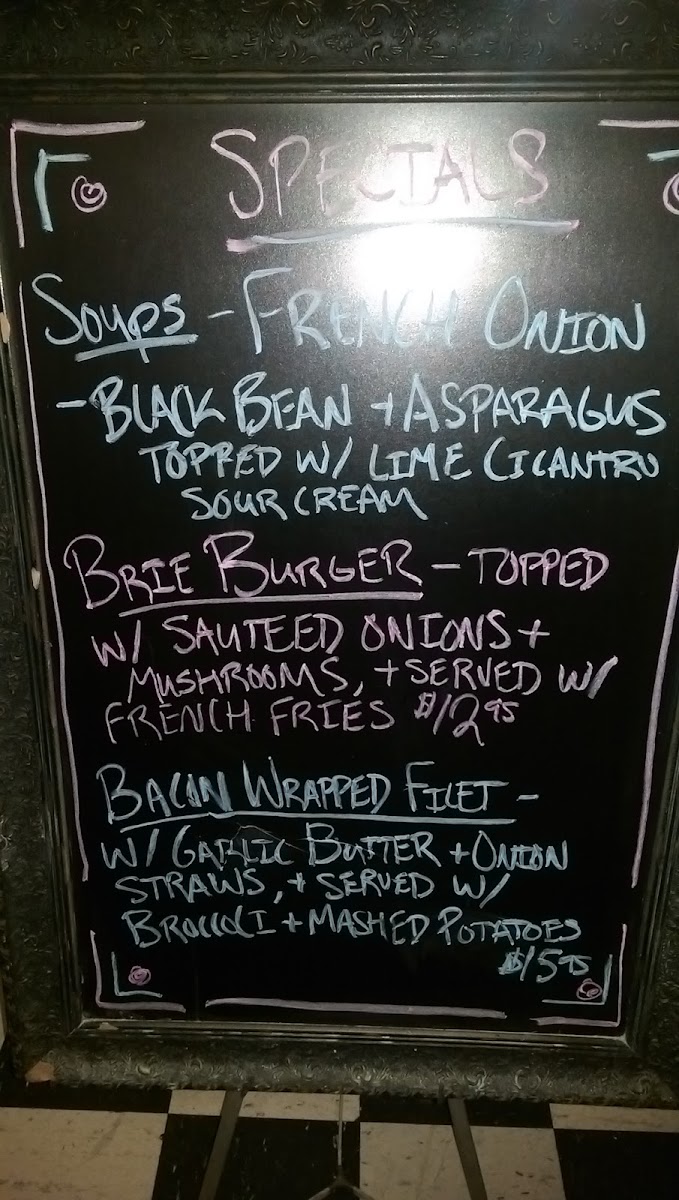 SPECIALS
SOUPS - FRENCH ONION
- BLACK BEAN + ASPARAGUS
TOPPED W/ LIME CICANTRO
SOUR CREAM
BRIE BURGER - TOPPED
W/ SAUTEED ONIONS +
MUSHROOMS, + SERVED W/
FRENCH FRIES $12.95
BACON WRAPPED FILET -
W/ GARLIC BUTTER + ONION
STRAWS, + SERVED W/
BROCCOLI + MASHED POTATOES
$15.95